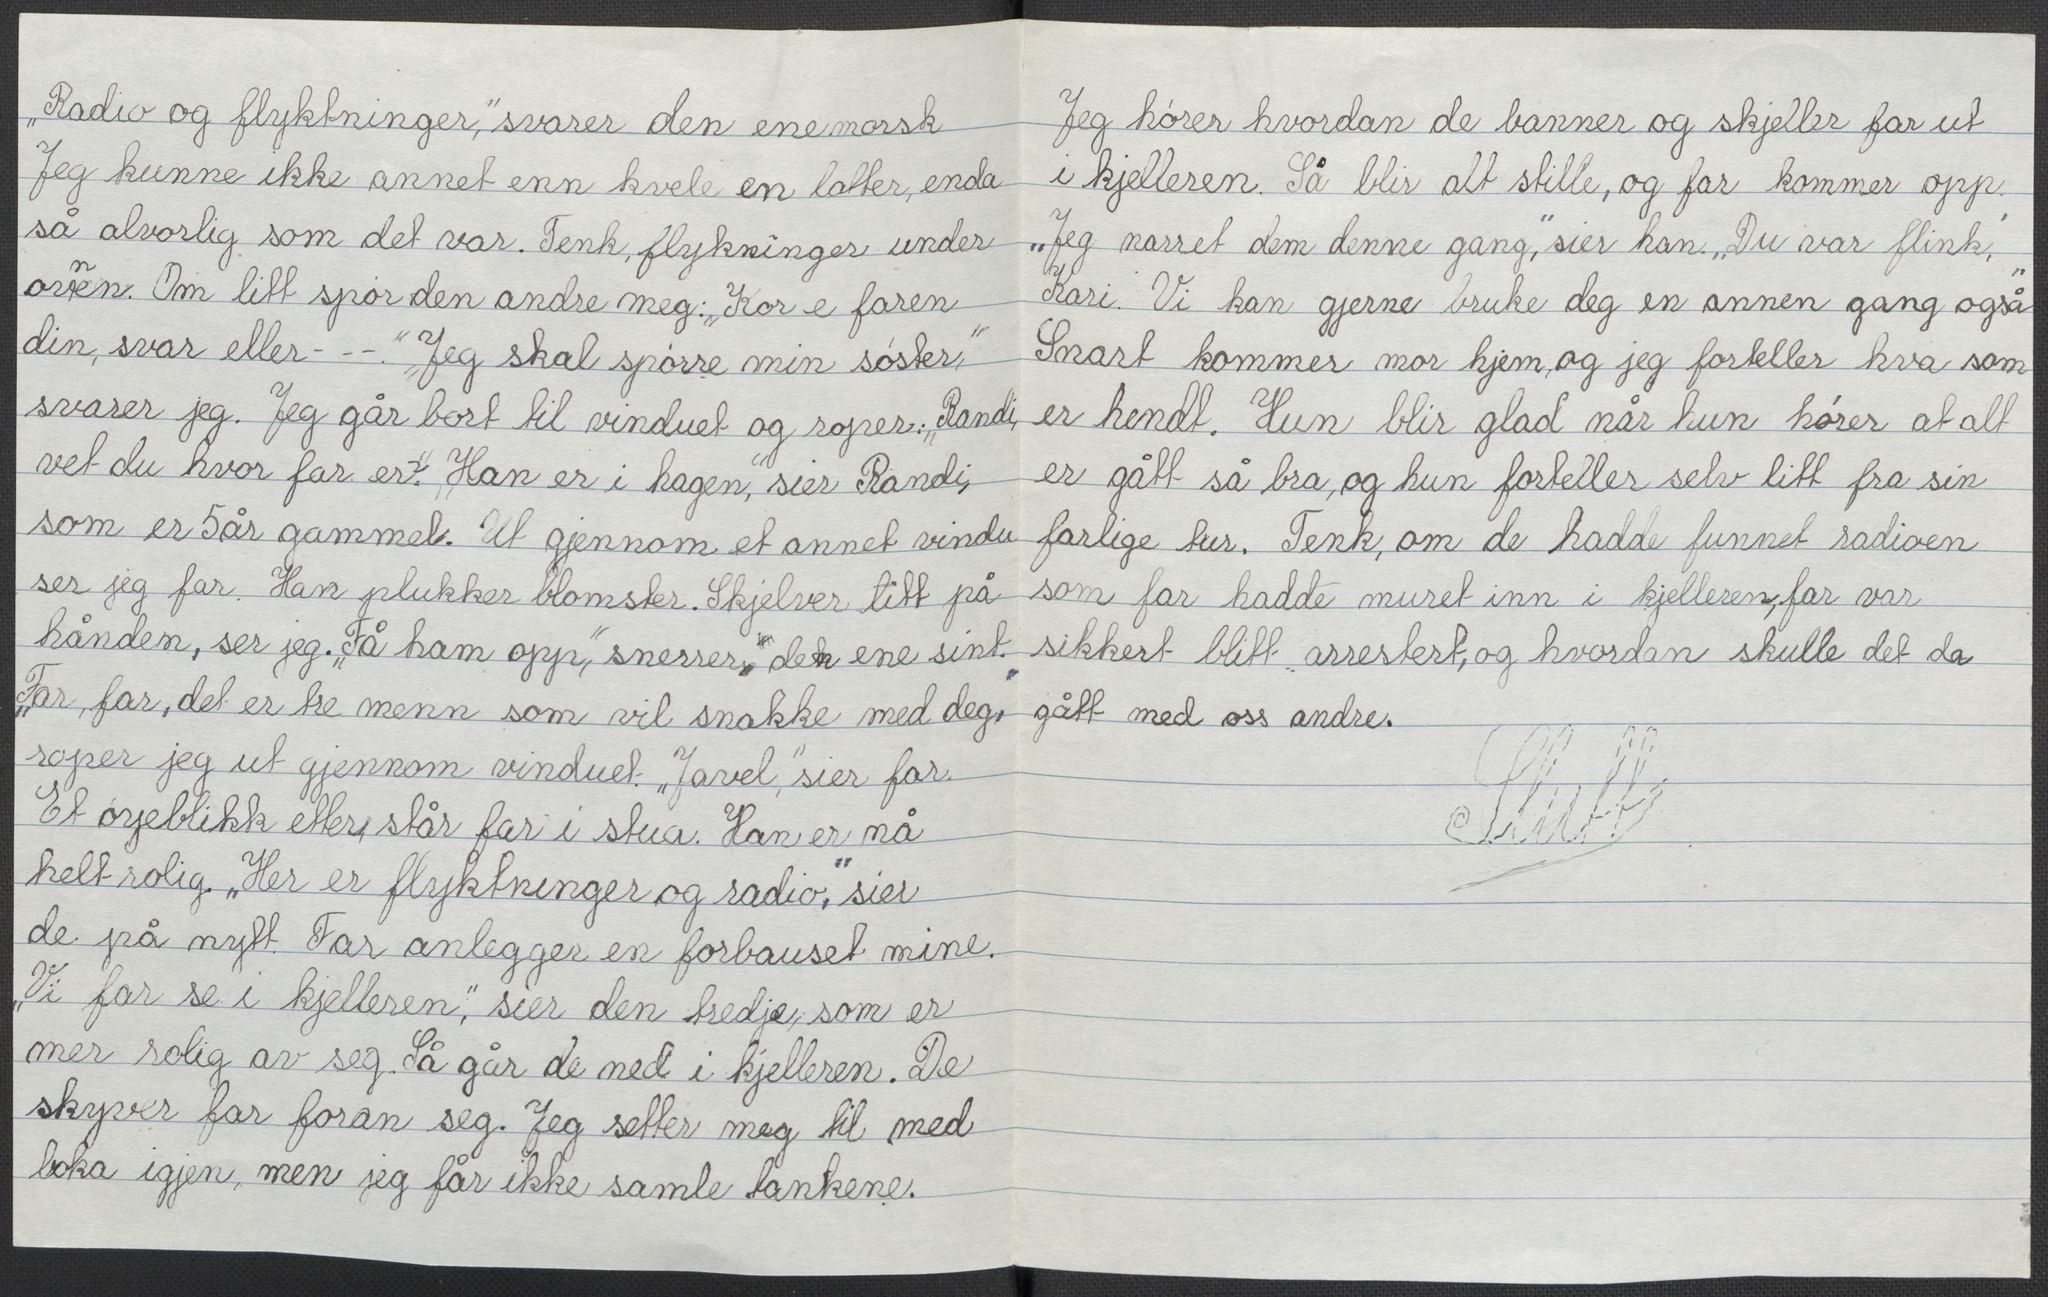 „Radio og flyktninger,” svarer den ene morsk
Jeg kunne ikke annet enn kvele en latter, enda
så alvorlig som det var. Tenk, flykninger under
ovnen. Om litt spør den andre meg: „Kor e faren
din, svar eller - - -.” „Jeg skal spørre min søster,”
svarer jeg. Jeg går bort til vinduet og roper: „Randi,
vet du hvor far er?” „Han er i hagen,” sier Randi,
som er 5 år gammel. Ut gjennom et annet vindu
ser jeg far. Han plukker blomster. Skjelver litt på
hånden, ser jeg. „Få ham opp,” snerrer den ene sint.
„Far, far, det er tre menn som vil snakke med deg,”
roper jeg ut gjennom vinduet. „Javel,” sier far.
Et øyeblikk etter, står far i stua. Han er nå
helt rolig. „Her er flyktninger og radio,” sier
de på nytt. Far anlegger en forbauset mine.
„Vi far se i kjelleren,” sier den tredje, som er
mer rolig av seg. Så går de ned i kjelleren. De
skyver far foran seg. Jeg setter meg til med
boka igjen, men jeg får ikke samle tankene.
Jeg hører hvordan de banner og skjeller far ut
i kjelleren. Så blir alt stille, og far kommer opp.
„Jeg narret dem denne gang,” sier han. „Du var flink,
Kari. Vi kan gjerne bruke deg en annen gang også”
Snart kommer mor hjem, og jeg forteller hva som
er hendt. Hun blir glad når hun hører at alt
er gått så bra, og hun forteller selv litt fra sin
farlige tur. Tenk, om de hadde funnet radioen
som far hadde muret inn i kjelleren, far var
sikkert blitt arrestert, og hvordan skulle det da
gått med oss andre.
Slutt